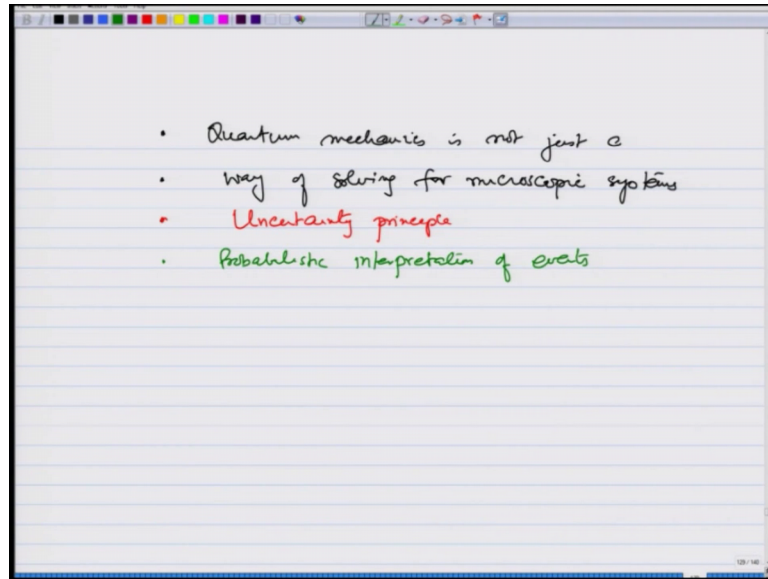 • Quantum mechanics is not just a
• way of solving for microscopic systems
• Uncertainty principle
• Probabilistic interpretation of events
129 / 140